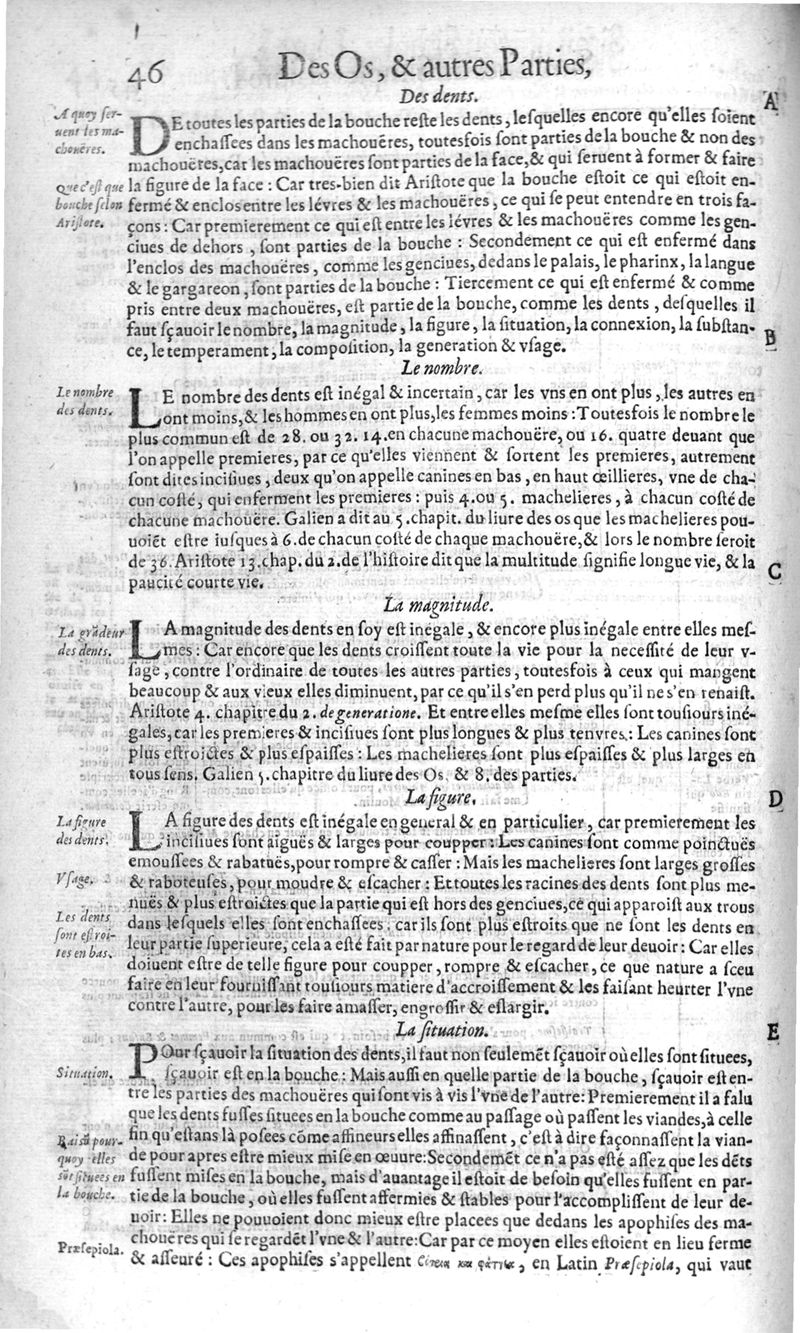 46
Des Os, & autres Parties,
Des dents.
A
A quoy ser-
uent les ma-
choueres.
DE toutes les parties de la bouche reste les dents, lesquelles encore qu'elles soient
enchassees dans les machouëres, toutesfois sont parties de la bouche & non des
machouëres, car les machouëres sont parties de la face, & qui seruent à former & faire
Que c'est que
bouche selon
Aristote.
la figure de la face : Car tres-bien dit Aristote que la bouche estoit ce qui estoit en-
fermé & enclos entre les lévres & les machouëres, ce qui se peut entendre en trois fa-
çons : Car premierement ce qui est entre les lévres & les machouëres comme les gen-
ciues de dehors, sont parties de la bouche : Secondement ce qui est enfermé dans
l'enclos des machouëres, comme les genciues, dedans le palais, le pharinx, la langue
& le gargareon, sont parties de la bouche : Tiercement ce qui est enfermé & comme
pris entre deux machouëres, est partie de la bouche, comme les dents, desquelles il
faut sçauoir le nombre, la magnitude, la figure, la situation, la connexion, la substan-
B
ce, le temperament, la composition, la generation & vsage.
Le nombre.
Le nombre
des dents.
LE nombre des dents est inégal & incertain, car les vns en ont plus, les autres en
ont moins, & les hommes en ont plus, les femmes moins : Toutesfois le nombre le
plus commun est de 28. ou 32. 14. en chacune machouëre, ou 16. quatre deuant que
l'on appelle premieres, par ce qu'elles viennent & sortent les premieres, autrement
sont dites incisiues, deux qu'on appelle canines en bas, en haut œillieres, vne de cha-
cun costé, qui enferment les premieres : puis 4. ou 5. machelieres, à chacun costé de
chacune machouëre. Galien a dit au 5. chapit. du liure des os que les machelieres pou-
uoiẽt estre iusques à 6. de chacun costé de chaque machouëre, & lors le nombre seroit
de 36. Aristote 13. chap. du 2. de l'histoire dit que la multitude signifie longue vie, & la
C
paucité courte vie.
La magnitude.
La grãdeur
des dents.
LA magnitude des dents en soy est inégale, & encore plus inégale entre elles mes-
mes : Car encore que les dents croissent toute la vie pour la necessité de leur v-
sage, contre l'ordinaire de toutes les autres parties, toutesfois à ceux qui mangent
beaucoup & aux vieux elles diminuent, par ce qu'il s'en perd plus qu'il ne s'en renaist.
Aristote 4. chapitre du 2. de generatione. Et entre elles mesme elles sont tousiours iné-
gales, car les premieres & incisiues sont plus longues & plus tenvres : Les canines sont
plus estroictes & plus espaisses : Les machelieres sont plus espaisses & plus larges en
tous sens. Galien 5. chapitre du liure des Os. & 8. des parties.
La figure.
D
La figure
des dents.
LA figure des dents est inégale en general & en particulier, car premierement les
incisiues sont aiguës & larges pour coupper : Les canines sont comme poinctuës
emoussees & rabatuës, pour rompre & casser : Mais les machelieres sont larges grosses
Vsage.
& raboteuses, pour moudre & escacher : Et toutes les racines des dents sont plus me-
nuës & plus estroictes que la partie qui est hors des genciues, ce qui apparoist aux trous
Les dents
sont estroi-
tes en bas.
dans lesquels elles sont enchassees, car ils sont plus estroits que ne sont les dents en
leur partie superieure, cela a esté fait par nature pour le regard de leur deuoir : Car elles
doiuent estre de telle figure pour coupper, rompre & escacher, ce que nature a sceu
faire en leur fournissant tousiours matiere d'accroissement & les faisant heurter l'vne
contre l'autre, pour les faire amasser, engrossir & eslargir.
La situation.
E
Situation.
POur sçauoir la situation des dents, il faut non seulemẽt sçauoir où elles sont situees,
sçauoir est en la bouche : Mais aussi en quelle partie de la bouche, sçauoir est en-
tre les parties des machouëres qui sont vis à vis l'vne de l'autre : Premierement il a falu
que les dents fusses situees en la bouche comme au passage où passent les viandes, à celle
Raisõ pour-
quoy elles
sõt situees en
la bouche.
fin qu'estans là posees cõme affineurs elles affinassent, c'est à dire façonnassent la vian-
de pour apres estre mieux mise en œuure : Secondemẽt ce n'a pas esté assez que les dẽts
fussent mises en la bouche, mais d'auantage il estoit de besoin qu'elles fussent en par-
tie de la bouche, où elles fussent affermies & stables pour l'accomplissent de leur de-
uoir : Elles ne pouuoient donc mieux estre placees que dedans les apophises des ma-
chouëres qui se regardẽt l'vne & l'autre : Car par ce moyen elles estoient en lieu ferme
Præsepiola.
& asseuré : Ces apophises s'appellent , en Latin Præsepiola, qui vaut